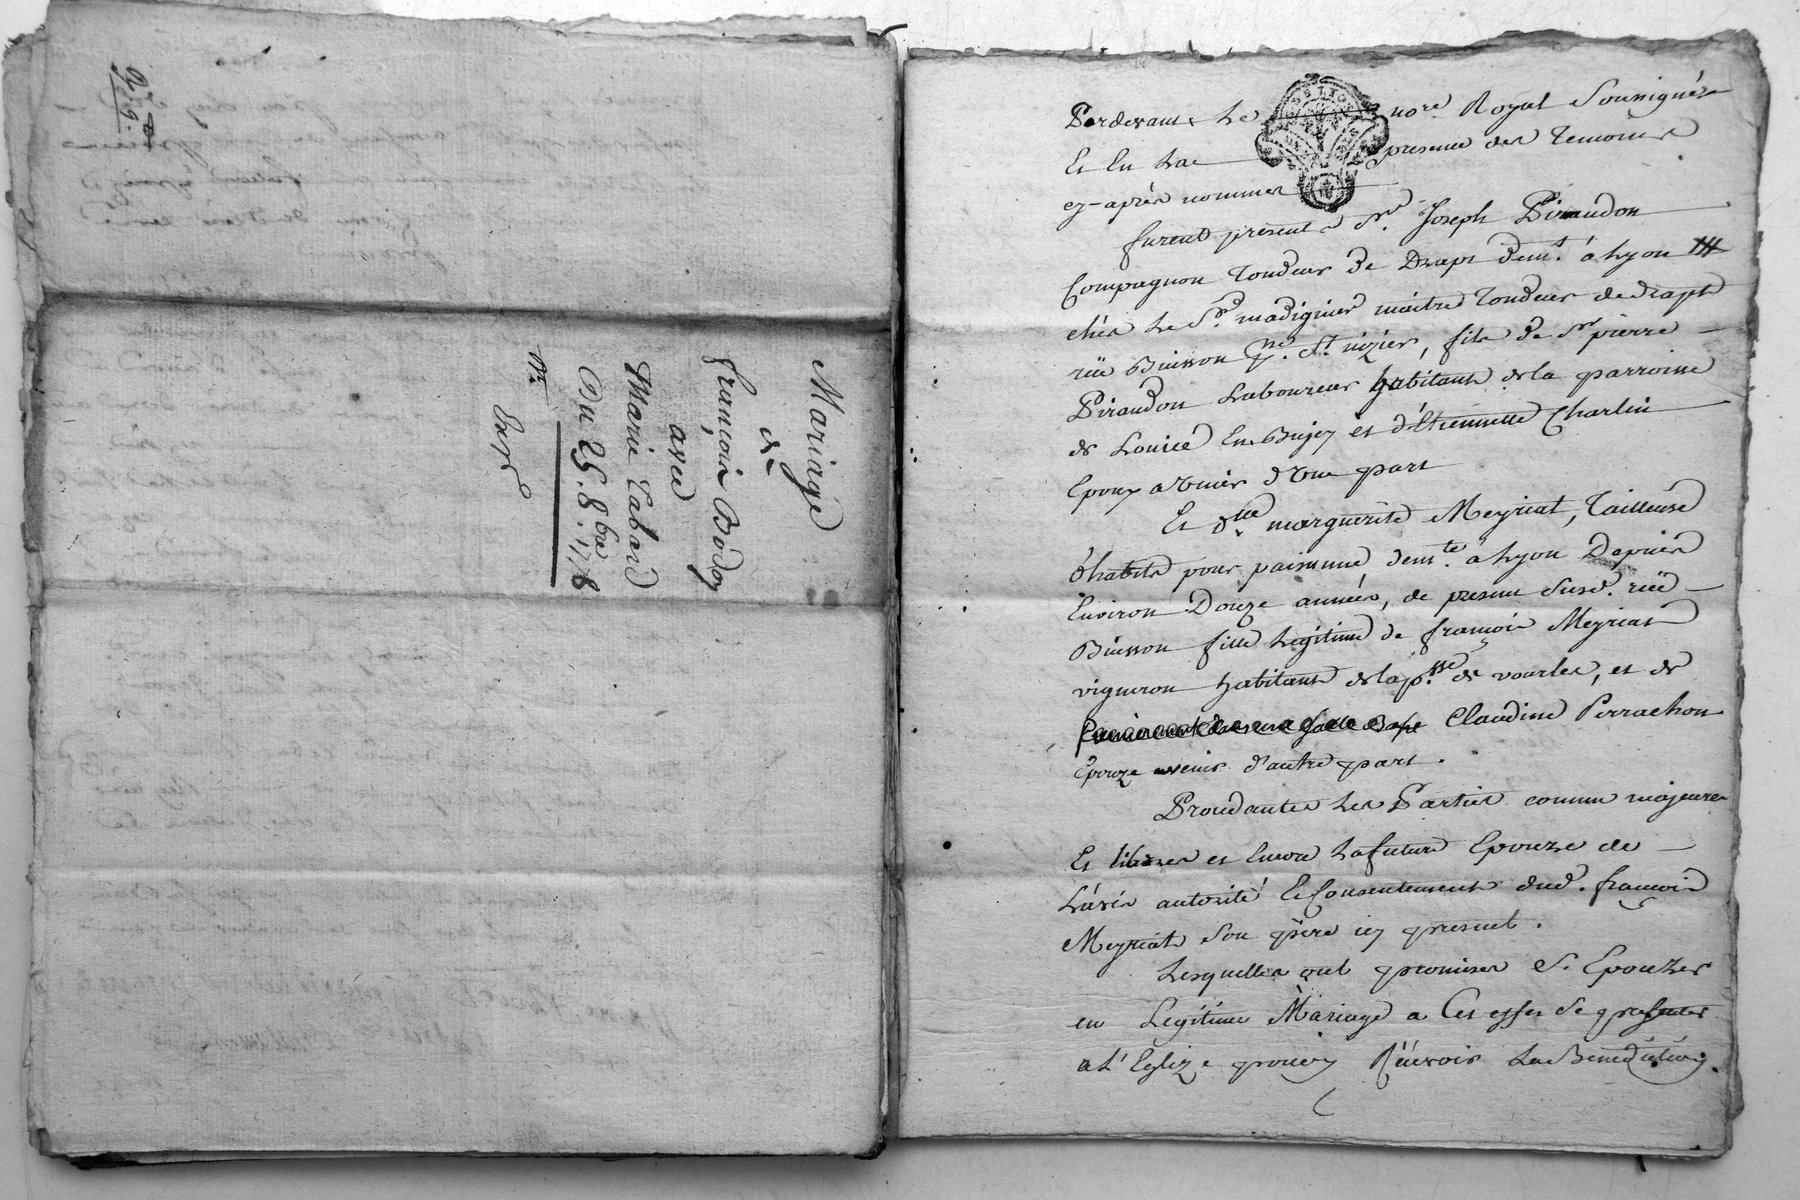 Mariage
de
françois Bodoy
avec
Marie Tabard
Du 25. 8bre 1778
Expé
Pardevant Le nore. Royal Soussigné
Et En La presence des Temoins
cy-après nommes
furent presents Sr. Joseph Piraudon
Compagnon Tondeur de Draps demt. à Lyon
chés Le Sr. madiginier maitre Tondeur de draps
rüe Buisson psse. St. nizier, fils de Sr pierre
Piraudon Laboureur habitant de la parroisse
de Lonice En Bujey et d'Etiennette Charlin
Epoux avenir d'Une part
Et dlle. marguerite Meyriat, Tailleuse
d'habits pour paisanne demte. a Lyon Depuis
Environ Douze années, de present susd. rüe
Buisson fille Legitime de françois Meyriat
vigneron habitant de la psse. de vourles, et de
Claudine Perrachon
Epouze avenir d'autre part.
Procedantes Les Parties comme majeures
Et libres et Encore La future Epouze de
L'avis autorité Et Consentement dud. françois
Meyriat son père icy present.
Lesquelles ont promises S. Epouzer
en Legitime Mariage a Cet effet Se presenter
a L'Eglize pour y Reçevoir La Benediction.